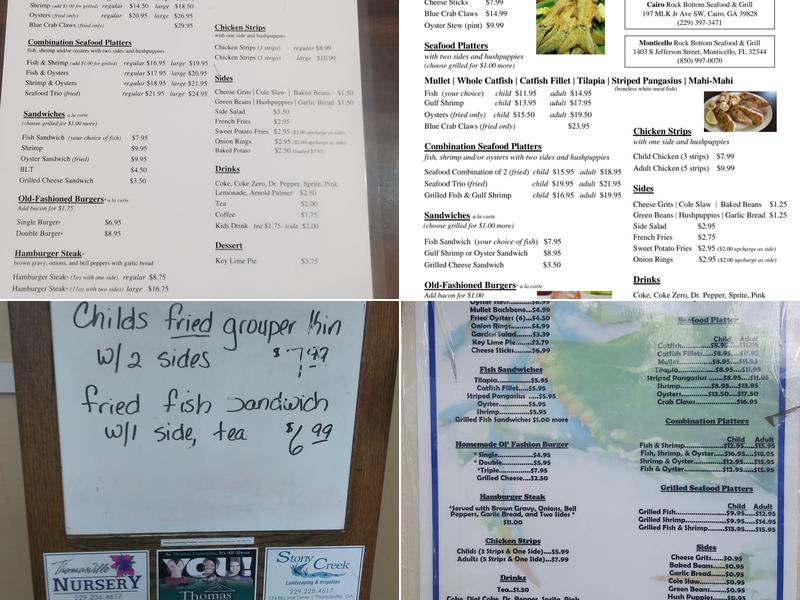 Shrimp (add $1.00 for grilled) regular $14.50 large $18.50
Oysters (fried only) regular $20.95 large $26.95
Blue Crab Claws (fried only) $29.95
Combination Seafood Platters
fish, shrimp and/or oysters with two sides and hushpuppies
Fish & Shrimp (add $1.00 for grilled) regular $16.95 large $19.95
Fish & Oysters regular $17.95 large $20.95
Shrimp & Oysters regular $18.95 large $21.95
Seafood Trio (fried) regular $21.95 large $24.95
Sandwiches a la carte
(choose grilled for $1.00 more)
Fish Sandwich (your choice of fish) $7.95
Shrimp $9.95
Oyster Sandwich (fried) $9.95
BLT $4.50
Grilled Cheese Sandwich $3.50
Old-Fashioned Burgers* a la carte
Add bacon for $1.75
Single Burger* $6.95
Double Burger* $8.95
Hamburger Steak*
brown gravy, onions, and bell peppers with garlic bread
Hamburger Steak* (5oz with one side) regular $8.75
Hamburger Steak* (11oz with two sides) large $16.75
Chicken Strips
with one side and hushpuppies
Chicken Strips (3 strips) regular $8.99
Chicken Strips (5 strips) large $10.99
Sides
Cheese Grits | Cole Slaw | Baked Beans $1.50
Green Beans | Hushpuppies | Garlic Bread $1.50
Side Salad $3.50
French Fries $2.95
Sweet Potato Fries $2.95 ($2.00 upcharge as side)
Onion Rings $2.95 ($2.00 upcharge as side)
Baked Potato $2.50 (loaded $3.95)
Drinks
Coke, Coke Zero, Dr. Pepper, Sprite, Pink
Lemonade, Arnold Palmer $2.50
Tea $2.00
Coffee $1.75
Kids Drink tea $1.75 soda $2.00
Dessert
Key Lime Pie $3.75
Cheese Sticks $7.99
Blue Crab Claws $14.99
Oyster Stew (pint) $9.99
Cairo Rock Bottom Seafood & Grill
197 MLK Jr Ave SW, Cairo, GA 39828
(229) 397-3471
Monticello Rock Bottom Seafood & Grill
1403 S Jefferson Street, Monticello, FL 32344
(850) 997-0070
Seafood Platters
with two sides and hushpuppies
(choose grilled for $1.00 more)
Mullet | Whole Catfish | Catfish Fillet | Tilapia | Striped Pangasius | Mahi-Mahi
(boneless white-meat fish)
Fish (your choice) child $11.95 adult $14.95
Gulf Shrimp child $13.95 adult $17.95
Oysters (fried only) child $15.50 adult $19.50
Blue Crab Claws (fried only) $23.95
Combination Seafood Platters
fish, shrimp and/or oysters with two sides and hushpuppies
Seafood Combination of 2 (fried) child $15.95 adult $18.95
Seafood Trio (fried) child $19.95 adult $21.95
Grilled Fish & Gulf Shrimp child $16.95 adult $19.95
Sandwiches a la carte
(choose grilled for $1.00 more)
Fish Sandwich (your choice of fish) $7.95
Gulf Shrimp or Oyster Sandwich $8.95
Grilled Cheese Sandwich $3.50
Old-Fashioned Burgers* a la carte
Add bacon for $1.00
Chicken Strips
with one side and hushpuppies
Child Chicken (3 strips) $7.99
Adult Chicken (5 strips) $9.99
Sides
Cheese Grits | Cole Slaw | Baked Beans $1.25
Green Beans | Hushpuppies | Garlic Bread $1.25
Side Salad $2.95
French Fries $2.75
Sweet Potato Fries $2.95 ($2.00 upcharge as side)
Onion Rings $2.95 ($2.00 upcharge as side)
Drinks
Coke, Coke Zero, Dr. Pepper, Sprite, Pink
Childs fried grouper thin
w/2 sides $7.99
fried fish sandwich
w/1 side, tea $6.99
Thomasville
NURSERY
229.236.4617
At Thomas University, It's All About
YOU!
Thomas
Stony Creek
Landscaping & Irrigation
229.228.4617
174 Big Star Drive | Thomasville, GA
Oyster Stew......$6.99
Mullet Backbone....$4.99
Fried Oysters (6)....$4.50
Onion Rings....$4.99
Garden Salad....$3.39
Key Lime Pie....$2.79
Cheese Sticks....$6.99
Fish Sandwiches
Tilapia.....$5.95
Catfish Fillet.....$5.95
Striped Pangasius .....$5.95
Oyster.....$5.95
Shrimp.....$5.95
Grilled Fish Sandwiches $1.00 more
Homemade Ol' Fashion Burger
* Single.....$4.95
* Double.....$5.95
*Triple.....$7.95
Grilled Cheese.....$2.50
Hamburger Steak
*Served with Brown Gravy, Onions, Bell
Peppers, Garlic Bread, and Two Sides *
$11.00
Chicken Strips
Childs (3 Strips & One Side)....$5.99
Adults (5 Strips & One Side)....$7.99
Drinks
Tea..$1.50
Coke, Diet Coke, Dr. Pepper, Sprite, Pink
Seafood Platter
Child Adult
Catfish.......$8.95....$11.95
Catfish Fillets.....$8.95....$11.95
Mullet.......$8.95....$11.95
Tilapia.......$8.95....$11.95
Striped Pangasius ....$8.95....$11.95
Shrimp.......$8.95....$13.95
Oysters.....$13.50...$17.50
Crab Claws.......$16.95
Combination Platters
Child Adult
Fish & Shrimp.......$12.95....$15.95
Fish, Shrimp, & Oyster....$16.95....$18.95
Shrimp & Oyster....$12.95....$15.95
Fish & Oyster....$12.95....$15.95
Grilled Seafood Platters
Child Adult
Grilled Fish.......$9.95....$12.95
Grilled Shrimp.......$9.95....$14.95
Grilled Fish & Shrimp....$13.95....$15.95
Sides
Cheese Grits....$0.95
Baked Beans....$0.95
Garlic Bread....$0.95
Cole Slaw....$0.95
Green Beans....$0.95
Hush Puppies....$0.95